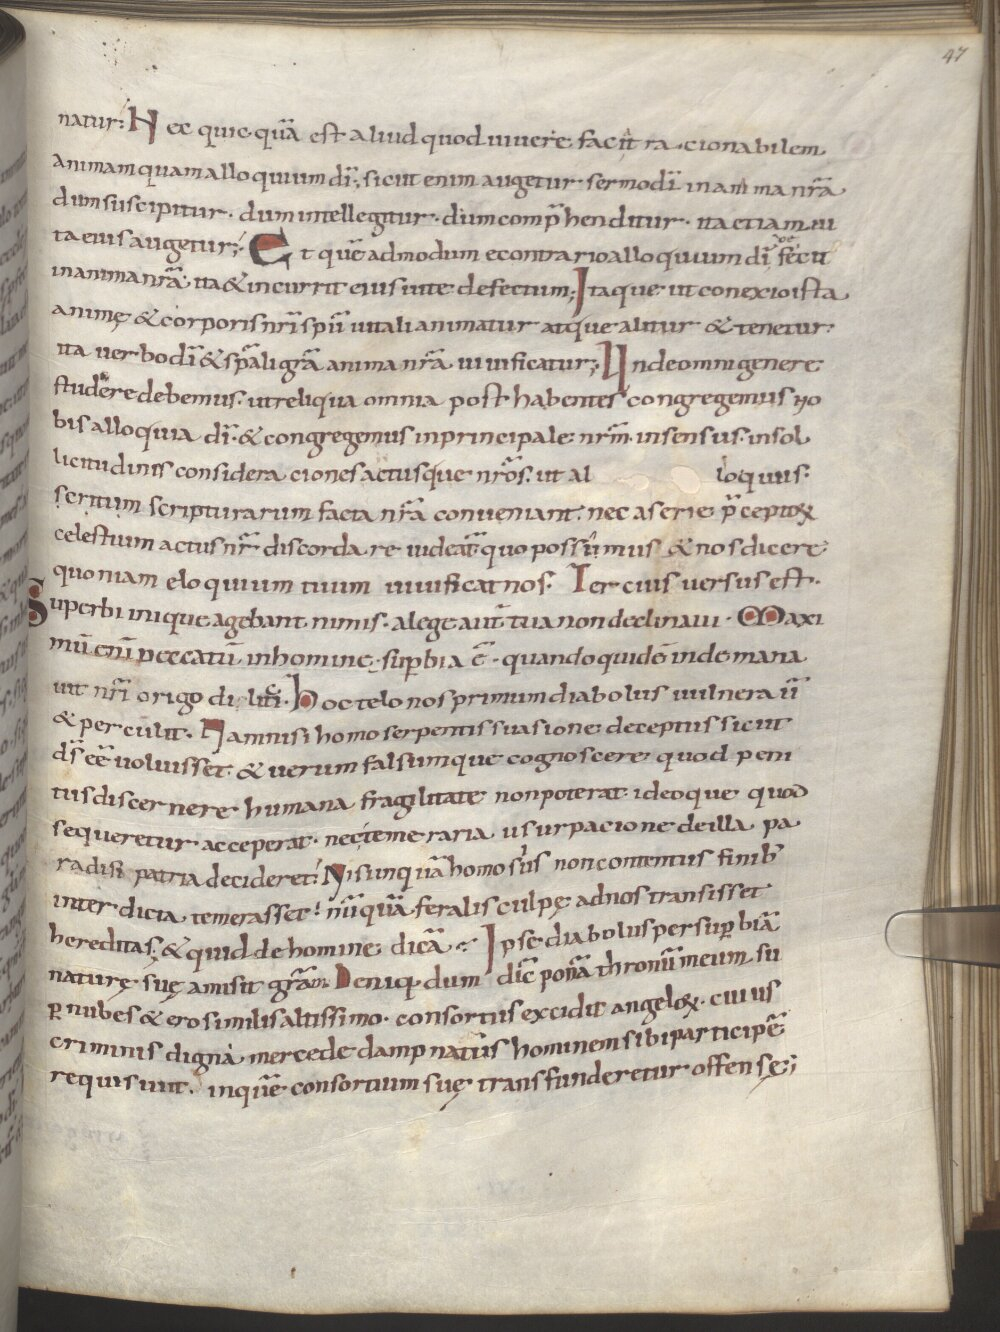 47
natur: Nec quicquā est aliud quod uiuere facit racionabilem
animam quam alloquium dī; sicut enim augetur sermo dī in anima nrā
dum suscipitur · dum intellegitur · dum comp̄henditur · ita etiam ui
ta eius augetur; Et quē admodum econtrario alloquium dī fecit
in anima nrā ita & incurrit eius uite defectum; Itaque ut conexio ista
animę & corporis nrī spū uitali animatur atque alitur & tenetur·
ita uerbo dī & spāli grā anima nrā uiuificatur; Unde omni genere
studere debemus · ut reliqua omnia posthabentes congregemus
bis alloquia dī · & congregemus in principale nrm̄ · in sensus · in sol
licitudinis consideraciones actusque nrōs · ut al loquiis·
scritum scripturarum facta nrā conueniant · nec a serie p̄ceptoꝝ
celestium actus nr̄ discordare uideat̄ quo possimus & nos dicere
quoniam eloquium tuum uiuificat nos · Tercius uersus est·
Superbi inique agebant nimis · a lege aut̄ tua non declinaui · Maxi
mū enī peccatū in homine · supbia ē · quando quidē inde mana
uit nrī origo dilicti · Hoc telo nos primum diabolus uulnerauit
& perculit · Nam nisi homo serpentis suasione deceptus sicut
ds̄ eē uoluisset · & uerum falsumque cognoscere quod peni
tus discernere humana fragilitate non poterat · ideoque quod
sequeretur acceperat · nec temeraria usurpacione de illa pa
radisi patria decideret: Nisi unquā homo suis non contentus finib;
interdicta temerasset: nū quā feralis culpę ad nos transisset
hereditas; & quid de homine dicā · Ipse diabolus per supbiā
naturę suę amisit grām · Deniq; dum dic̄ ponā thronū meum su
p̱ nubes & ero similis altissimo · consortiis excidit angeloꝝ · cuius
criminis digna mercede dampnatus hominem sibi participē
requisiuit · in quē consortium suę transfunderetur offensę;